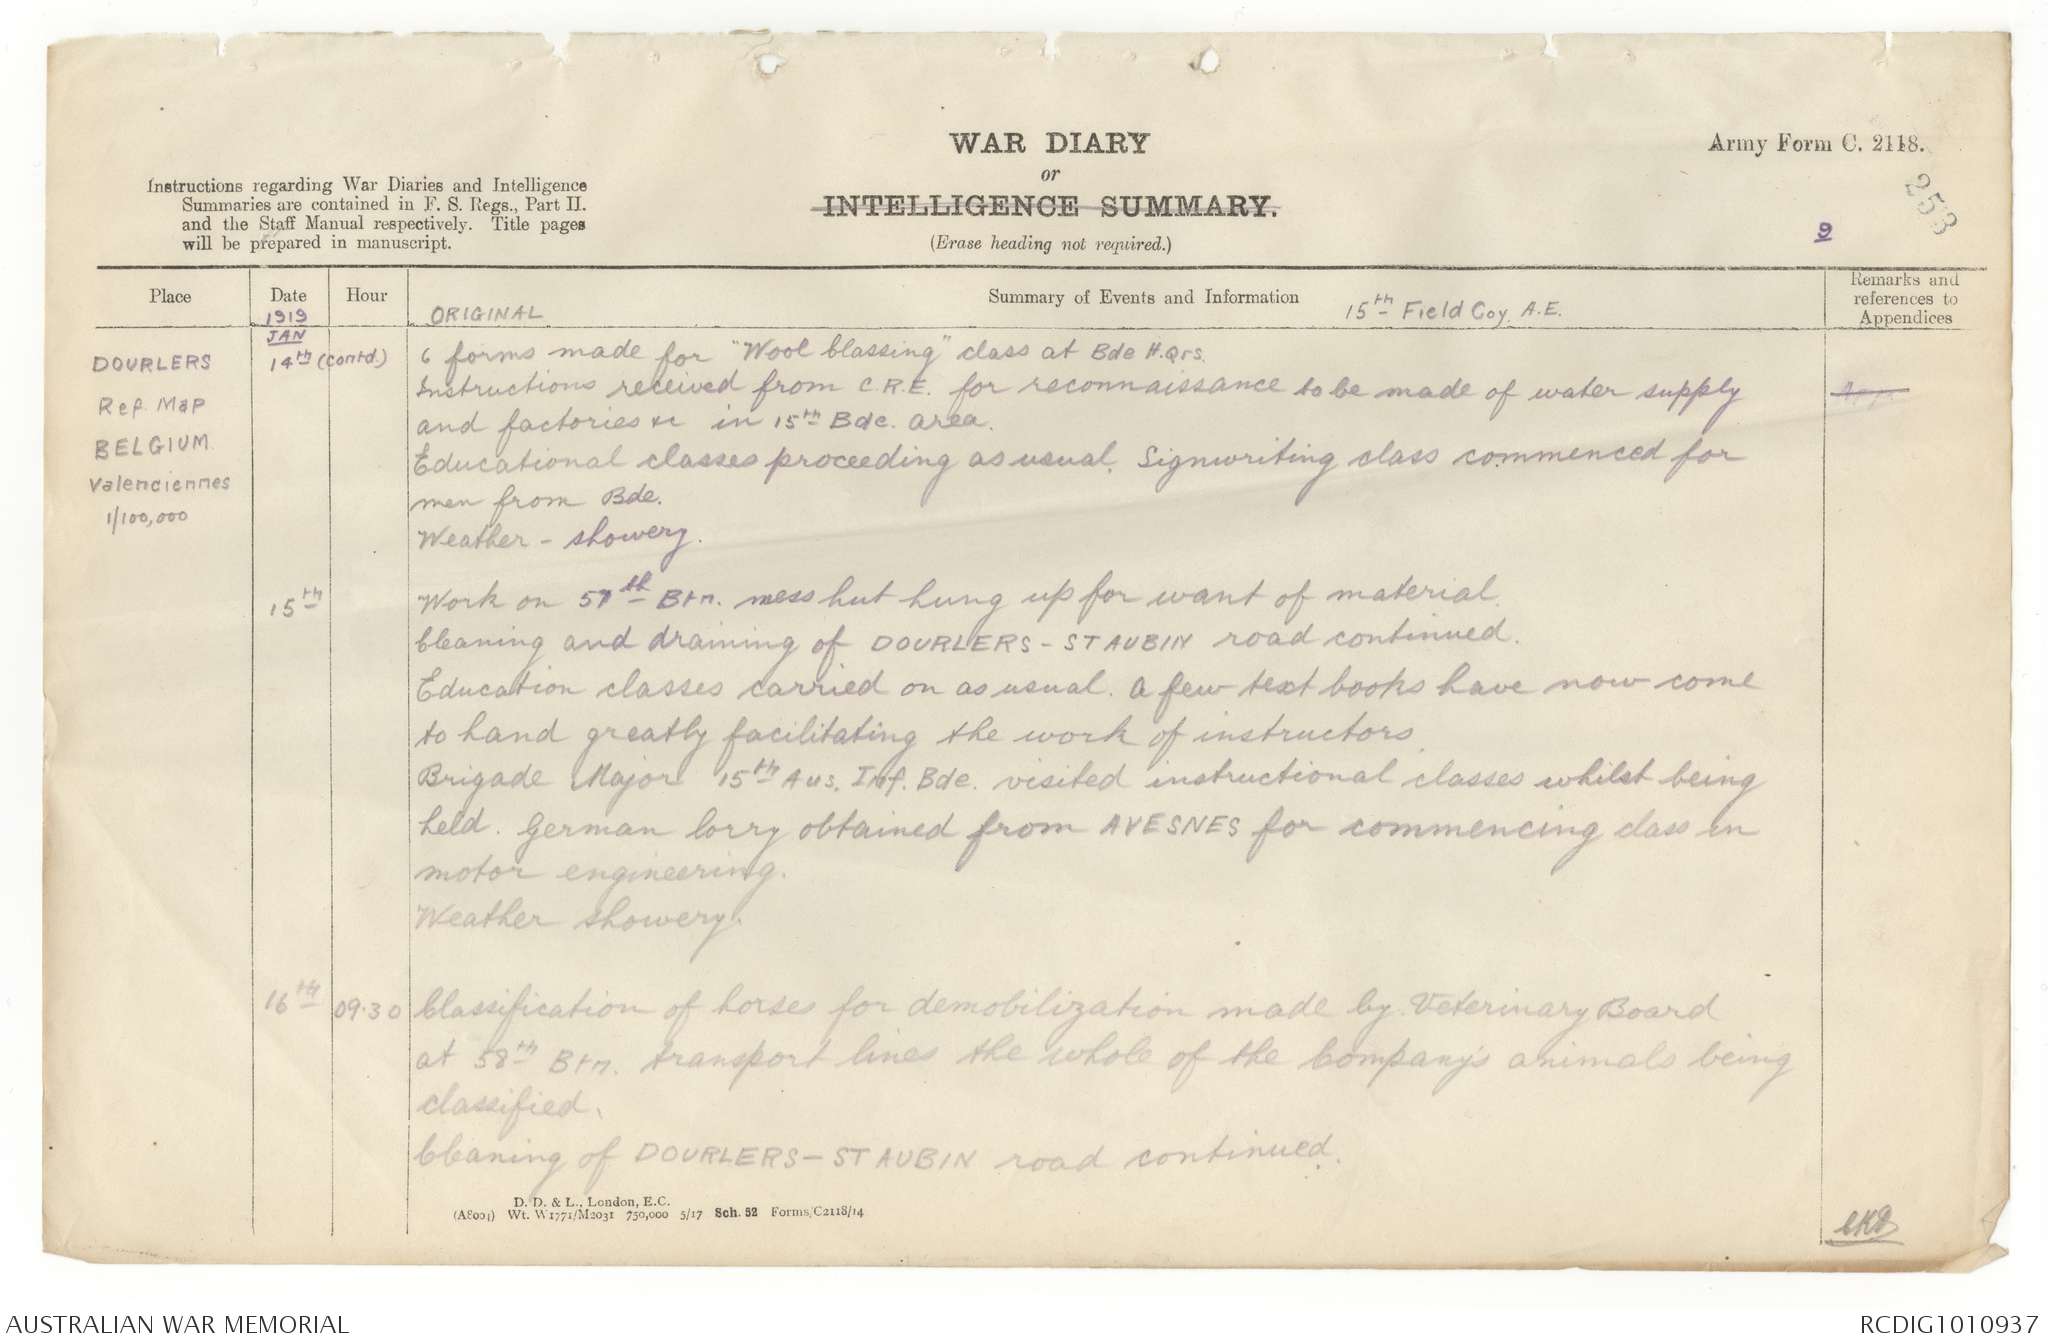 WAR DIARY
or
INTELLIGENCE SUMMARY.
(Erase heading not required.)
Army Form C. 2118.
Instructions regarding War Diaries and Intelligence
Summaries are contained in F. S. Regs., Part II.
and the Staff Manual respectively. Title pages
will be prepared in manuscript.
253
9
Place
Date
Hour
Summary of Events and Information
Remarks and
references to
Appendices
1919
JAN
ORIGINAL
15th Field Coy. A.E.
DOURLERS
Ref. Map
BELGIUM.
Valenciennes
1/100,000
14th (contd.)
6 forms made for "Wool Classing" class at Bde H.Qrs.
Instructions received from C.R.E. for reconnaissance to be made of water supply
and factories &c in 15th Bde. area.
Educational classes proceeding as usual. Signwriting class commenced for
men from Bde.
Weather - showery.
15th
Work on 57th Btn. mess hut hung up for want of material.
Cleaning and draining of DOURLERS - ST AUBIN road continued.
Education classes carried on as usual. A few text books have now come
to hand greatly facilitating the work of instructors.
Brigade Major 15th Aus. Inf. Bde. visited instructional classes whilst being
held. German lorry obtained from AVESNES for commencing class in
motor engineering.
Weather showery.
16th
09.30
Classification of horses for demobilization made by Veterinary Board
at 58th Btn. transport lines the whole of the Company's animals being
classified.
Cleaning of DOURLERS - ST AUBIN road continued.
D. D. & L., London, E.C.
(A8004) Wt. W1771/M2031 750,000 5/17 Sch. 52 Forms/C2118/14
AUSTRALIAN WAR MEMORIAL
RCDIG1010937